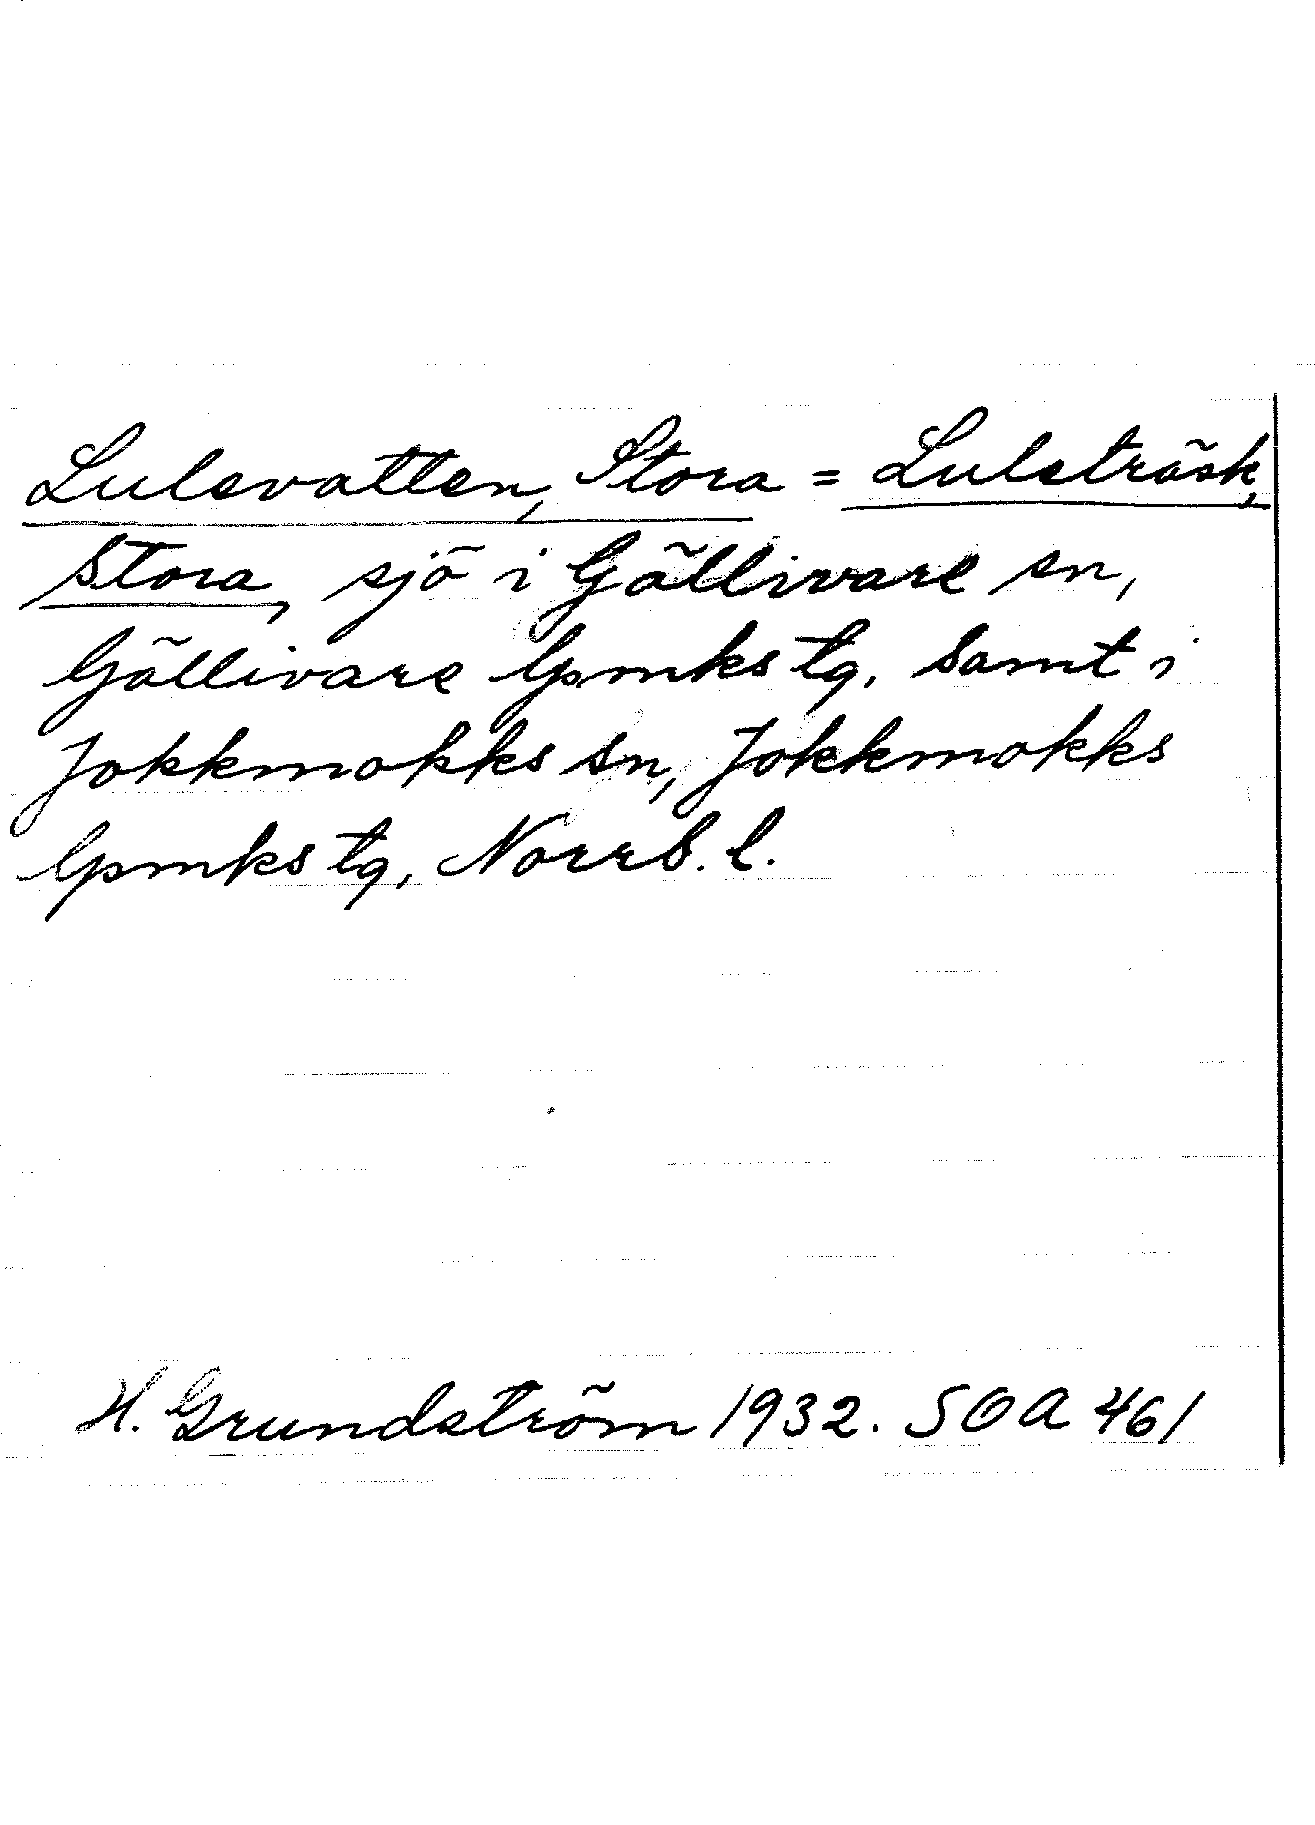 Lulevatten, Stora = Luleträsk,
Stora, sjö i Gällivare sn,
Gällivare lpmks tg, samt i
Jokkmokks sn, Jokkmokks
lpmks tg, Norrb. l.
H. Grundström 1932. SOA 461